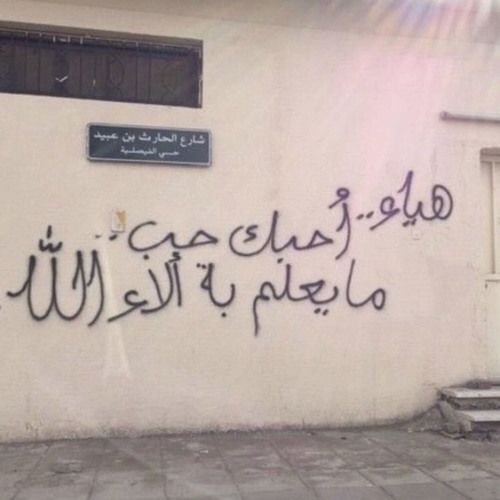 شارع الحارث بن عبيد
حي الفيصلية
هياء.. أحبك حب
ما يعلم بة ألاء الله